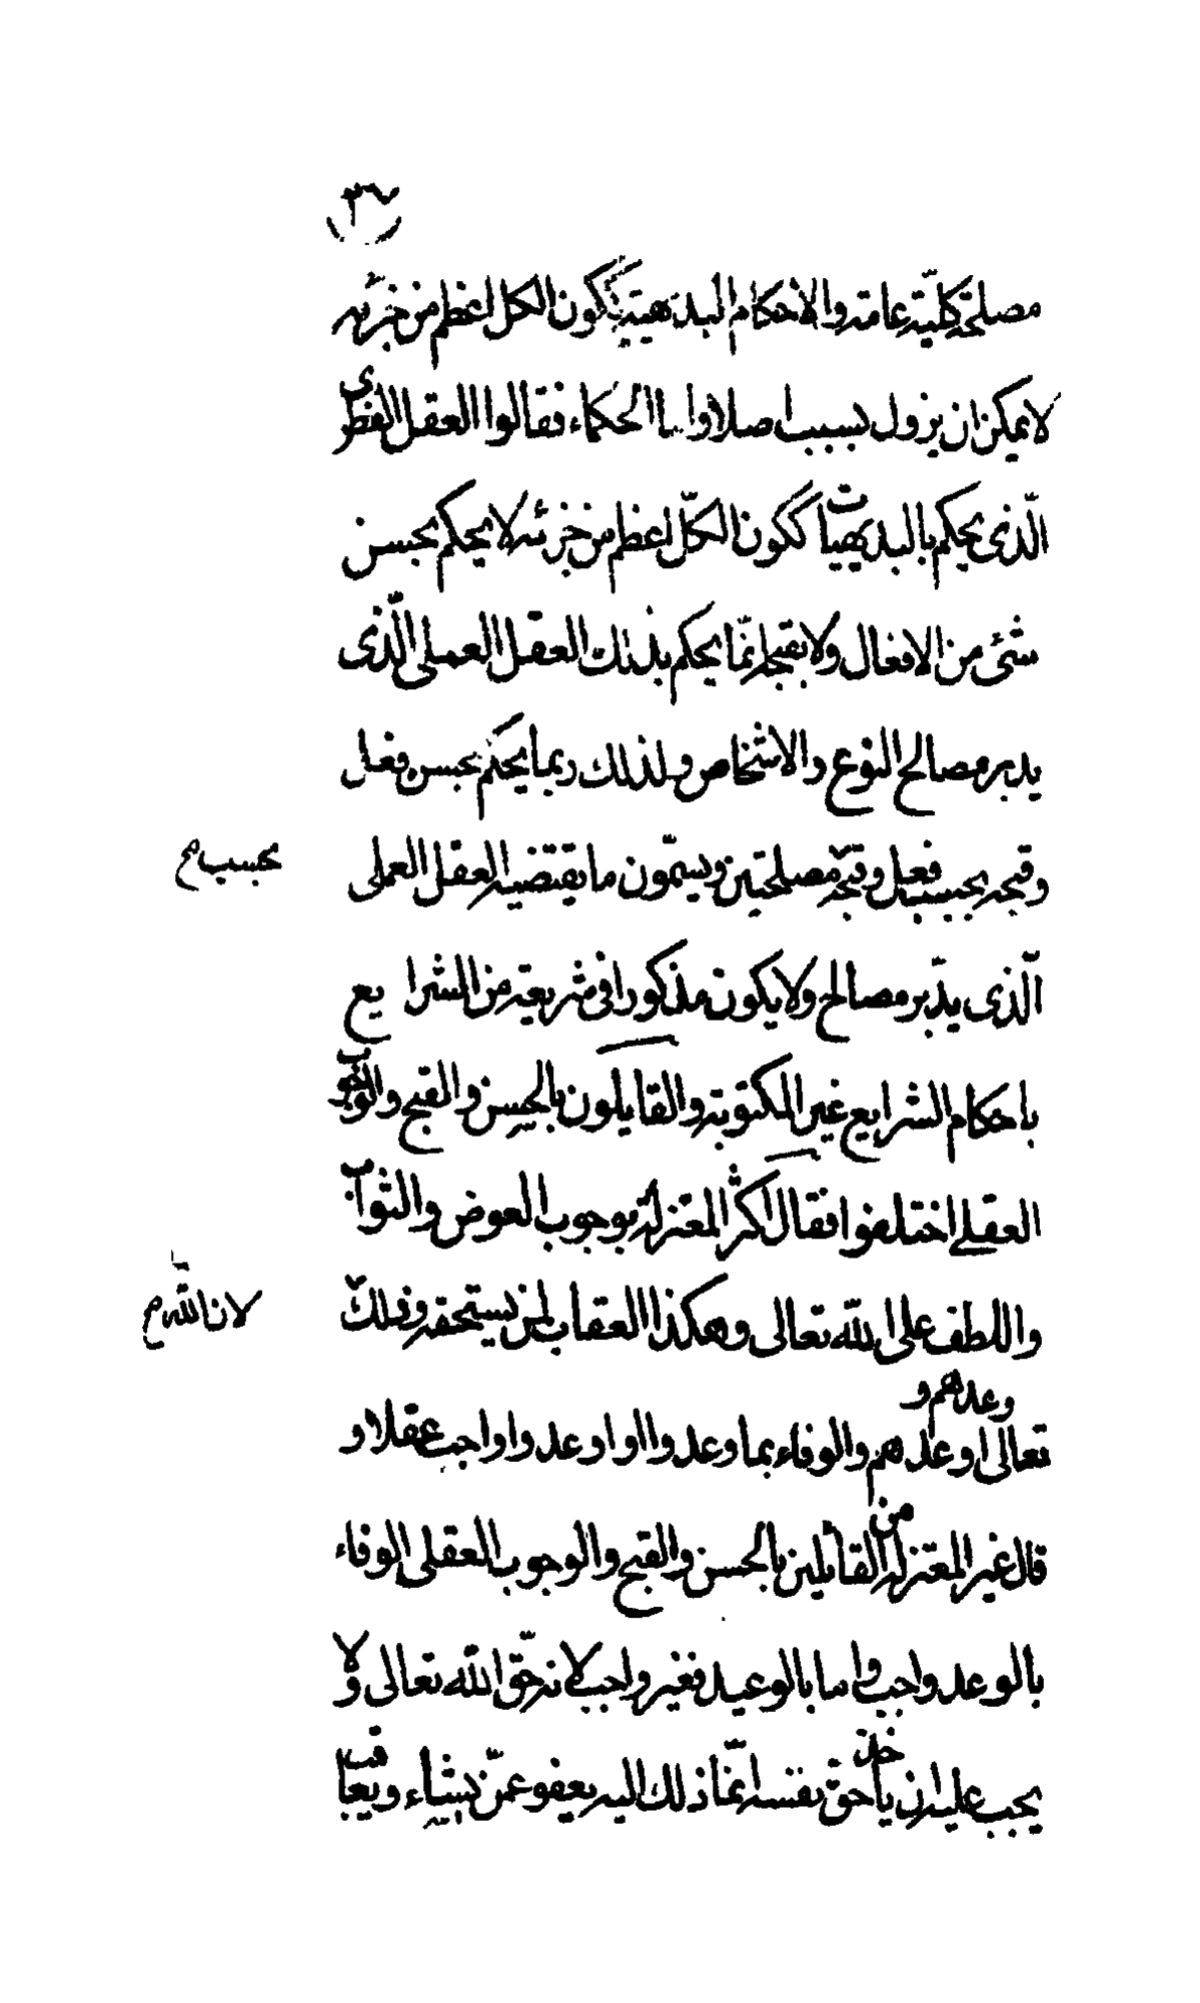 ٣٦
مصلحة كليّة عامة والاحكام البديهية ككون الكل اعظم من جزئه
لا يمكن ان يزول بسبب اصلا واما الحكماء فقالوا العقل الفطرى
الّذى يحكم بالبديهيات ككون الكلّ اعظم من جزئه لا يحكم بحسن
شئ من الافعال ولا بقبحه انّما يحكم بذلك العقل العملى الّذى
يدبر مصالح النوع والاشخاص ولذلك ربما يحكم بحسن فعل
وقبحه بحسب فعل وقبحه مصلحتين ويسمّون ما يقتضيه العقل العملى
بحسب م
الّذى يدّبر مصالح ولا يكون مذكورا فى شريعة من الشرا يع
باحكام الشرايع غير المكتوبة والقايلون بالحسن والقبح والوجوب
العقلى اختلفوا فقال اكثر المعتزلة بوجوب العوض والثواب
واللطف على الله تعالى وهكذا العقاب لمن يستحقه وذلك
لان الله م
وعدهم و
تعالى اوعدهم والوفاء بما وعدوا او اوعدوا واجب عقلا و
قال غير المعتزلة من القائلين بالحسن والقبح والوجوب العقلى الوفاء
بالوعد واجب واما بالوعيد فغير واجب لانه حّق الله تعالى ولا
يجب عليه ان ياخذ حق نفسه انّما ذلك اليه يعفو عمّن يشاء ويعاقب